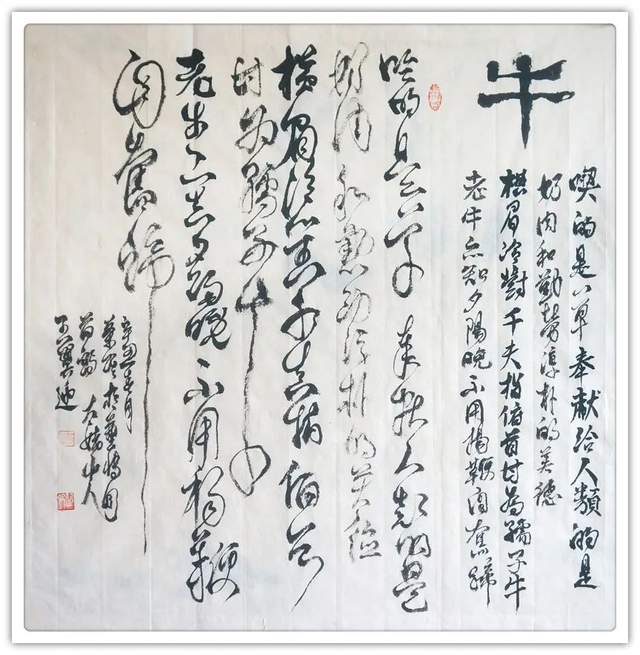 牛
喫的是草奉獻給人類的是
奶肉和勤勞淳朴的美德
橫眉冷對千夫指俯首甘為孺子牛
老牛亦知夕陽晚不用揚鞭自奮蹄
吃的是草奉獻人類的是
奶肉和勤勞淳朴的美德
橫眉冷對千夫指俯首
甘為孺子牛
老牛亦知夕陽晚不用揚鞭
自奮蹄
辛丑年月
太姥山人